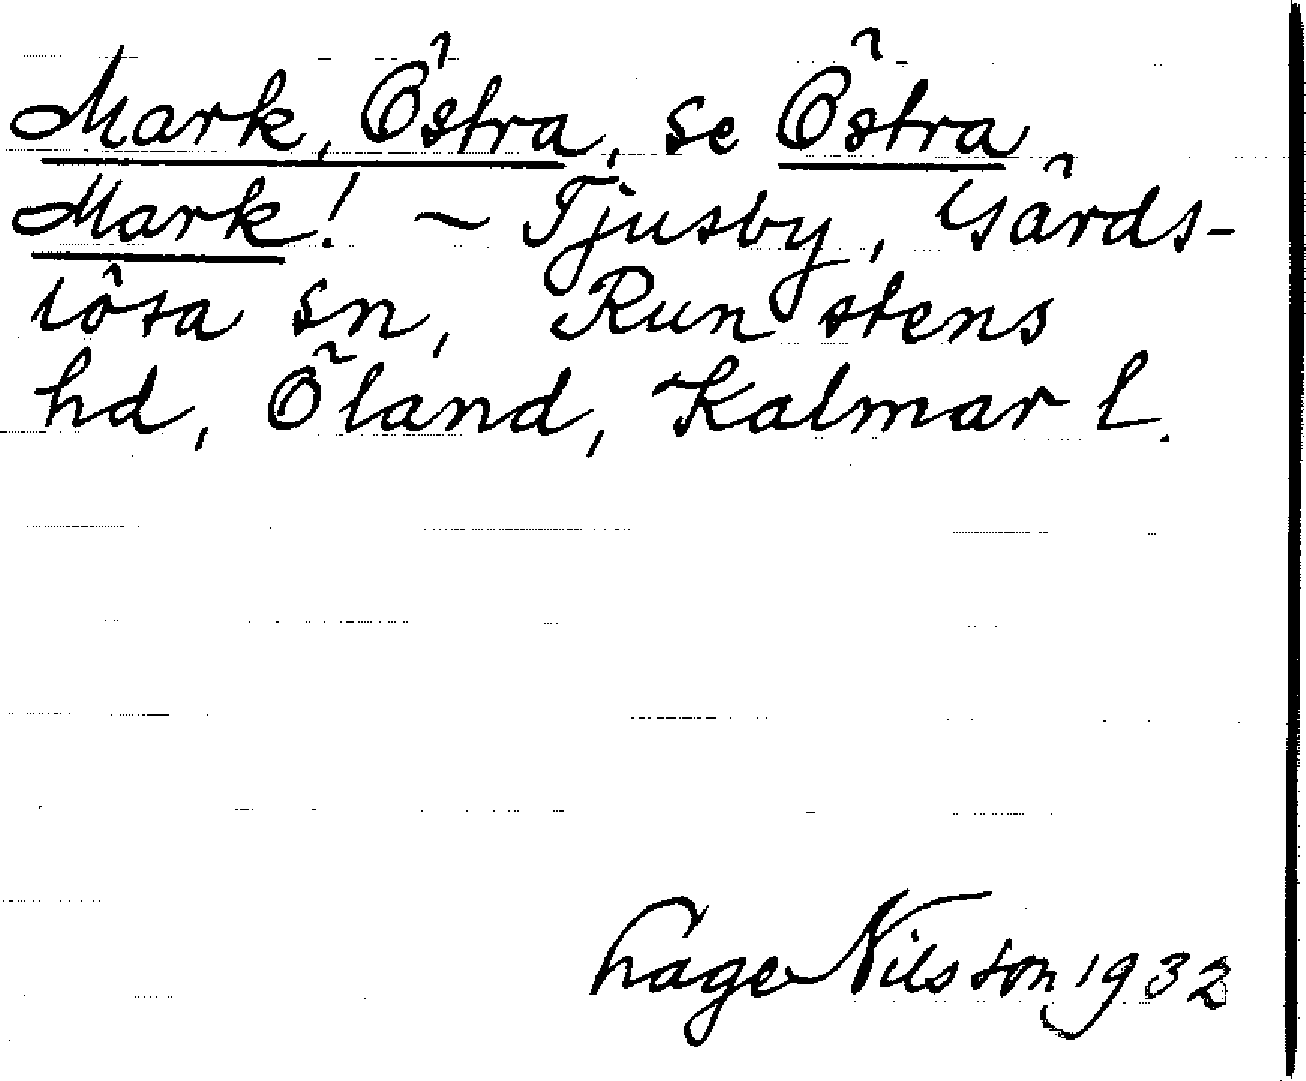 Mark, Östra, se Östra
Mark! – Tjusby, Gårds-
lösa sn, Runstens
hd, Öland, Kalmar l.
Hage Nilsson 1932